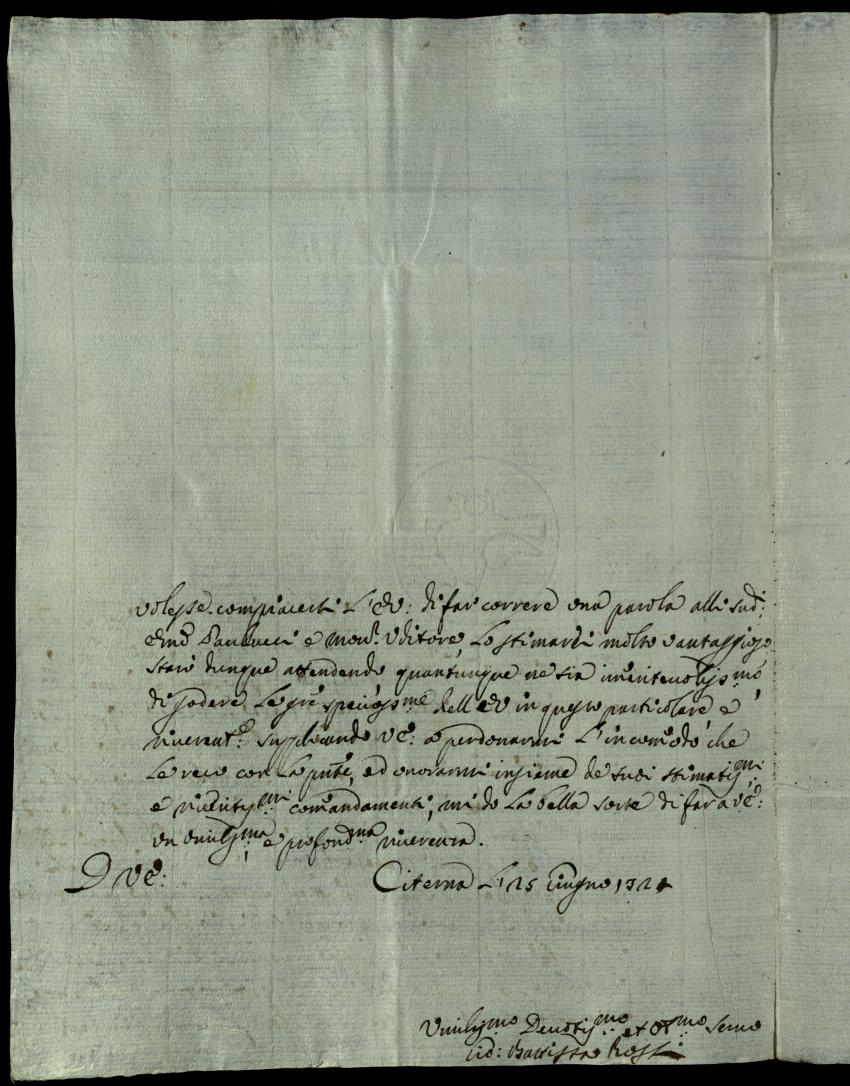 volesse compiacersi l'Ev: di far correre una parola alli sudi:
Emo Paulucci e Monr. Uditore lo stimarei molto vantaggioso
starò dunque attendendo quantunque ne sia imeritevolissmo
di godere le gre speciosissme dell'Ev in questo particolare e
riverentte supplicando VE: a perdonarmi l'incomodo che
le reco con la pnte, ed onorarmi insieme de suoi stimatissmi
e riveritissmi comandamenti, mi do la bella sorte di far a VE:
un umilissma, e profondma riverenza.
D VE:
Citerna li 25 Giugno 1724
Umilissmo Devotissmo et Obmo Servo
Gio: Battista Rossi